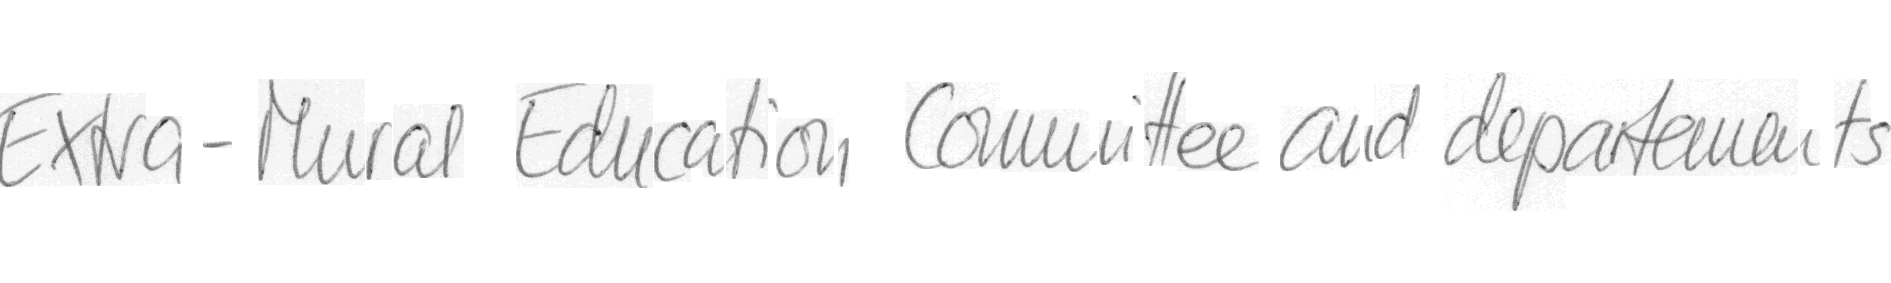 Extra-Mural Education Committee and departements